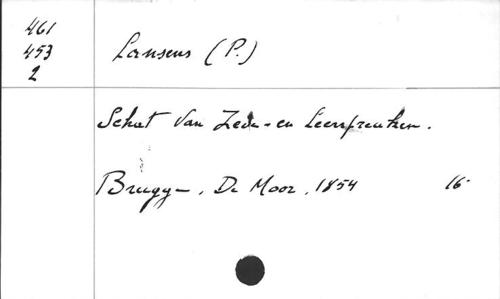 461
453
2
Lansens (P.)
Schat van Zede-en Leerspreuken.
Brugge, De Moor, 1854 16-